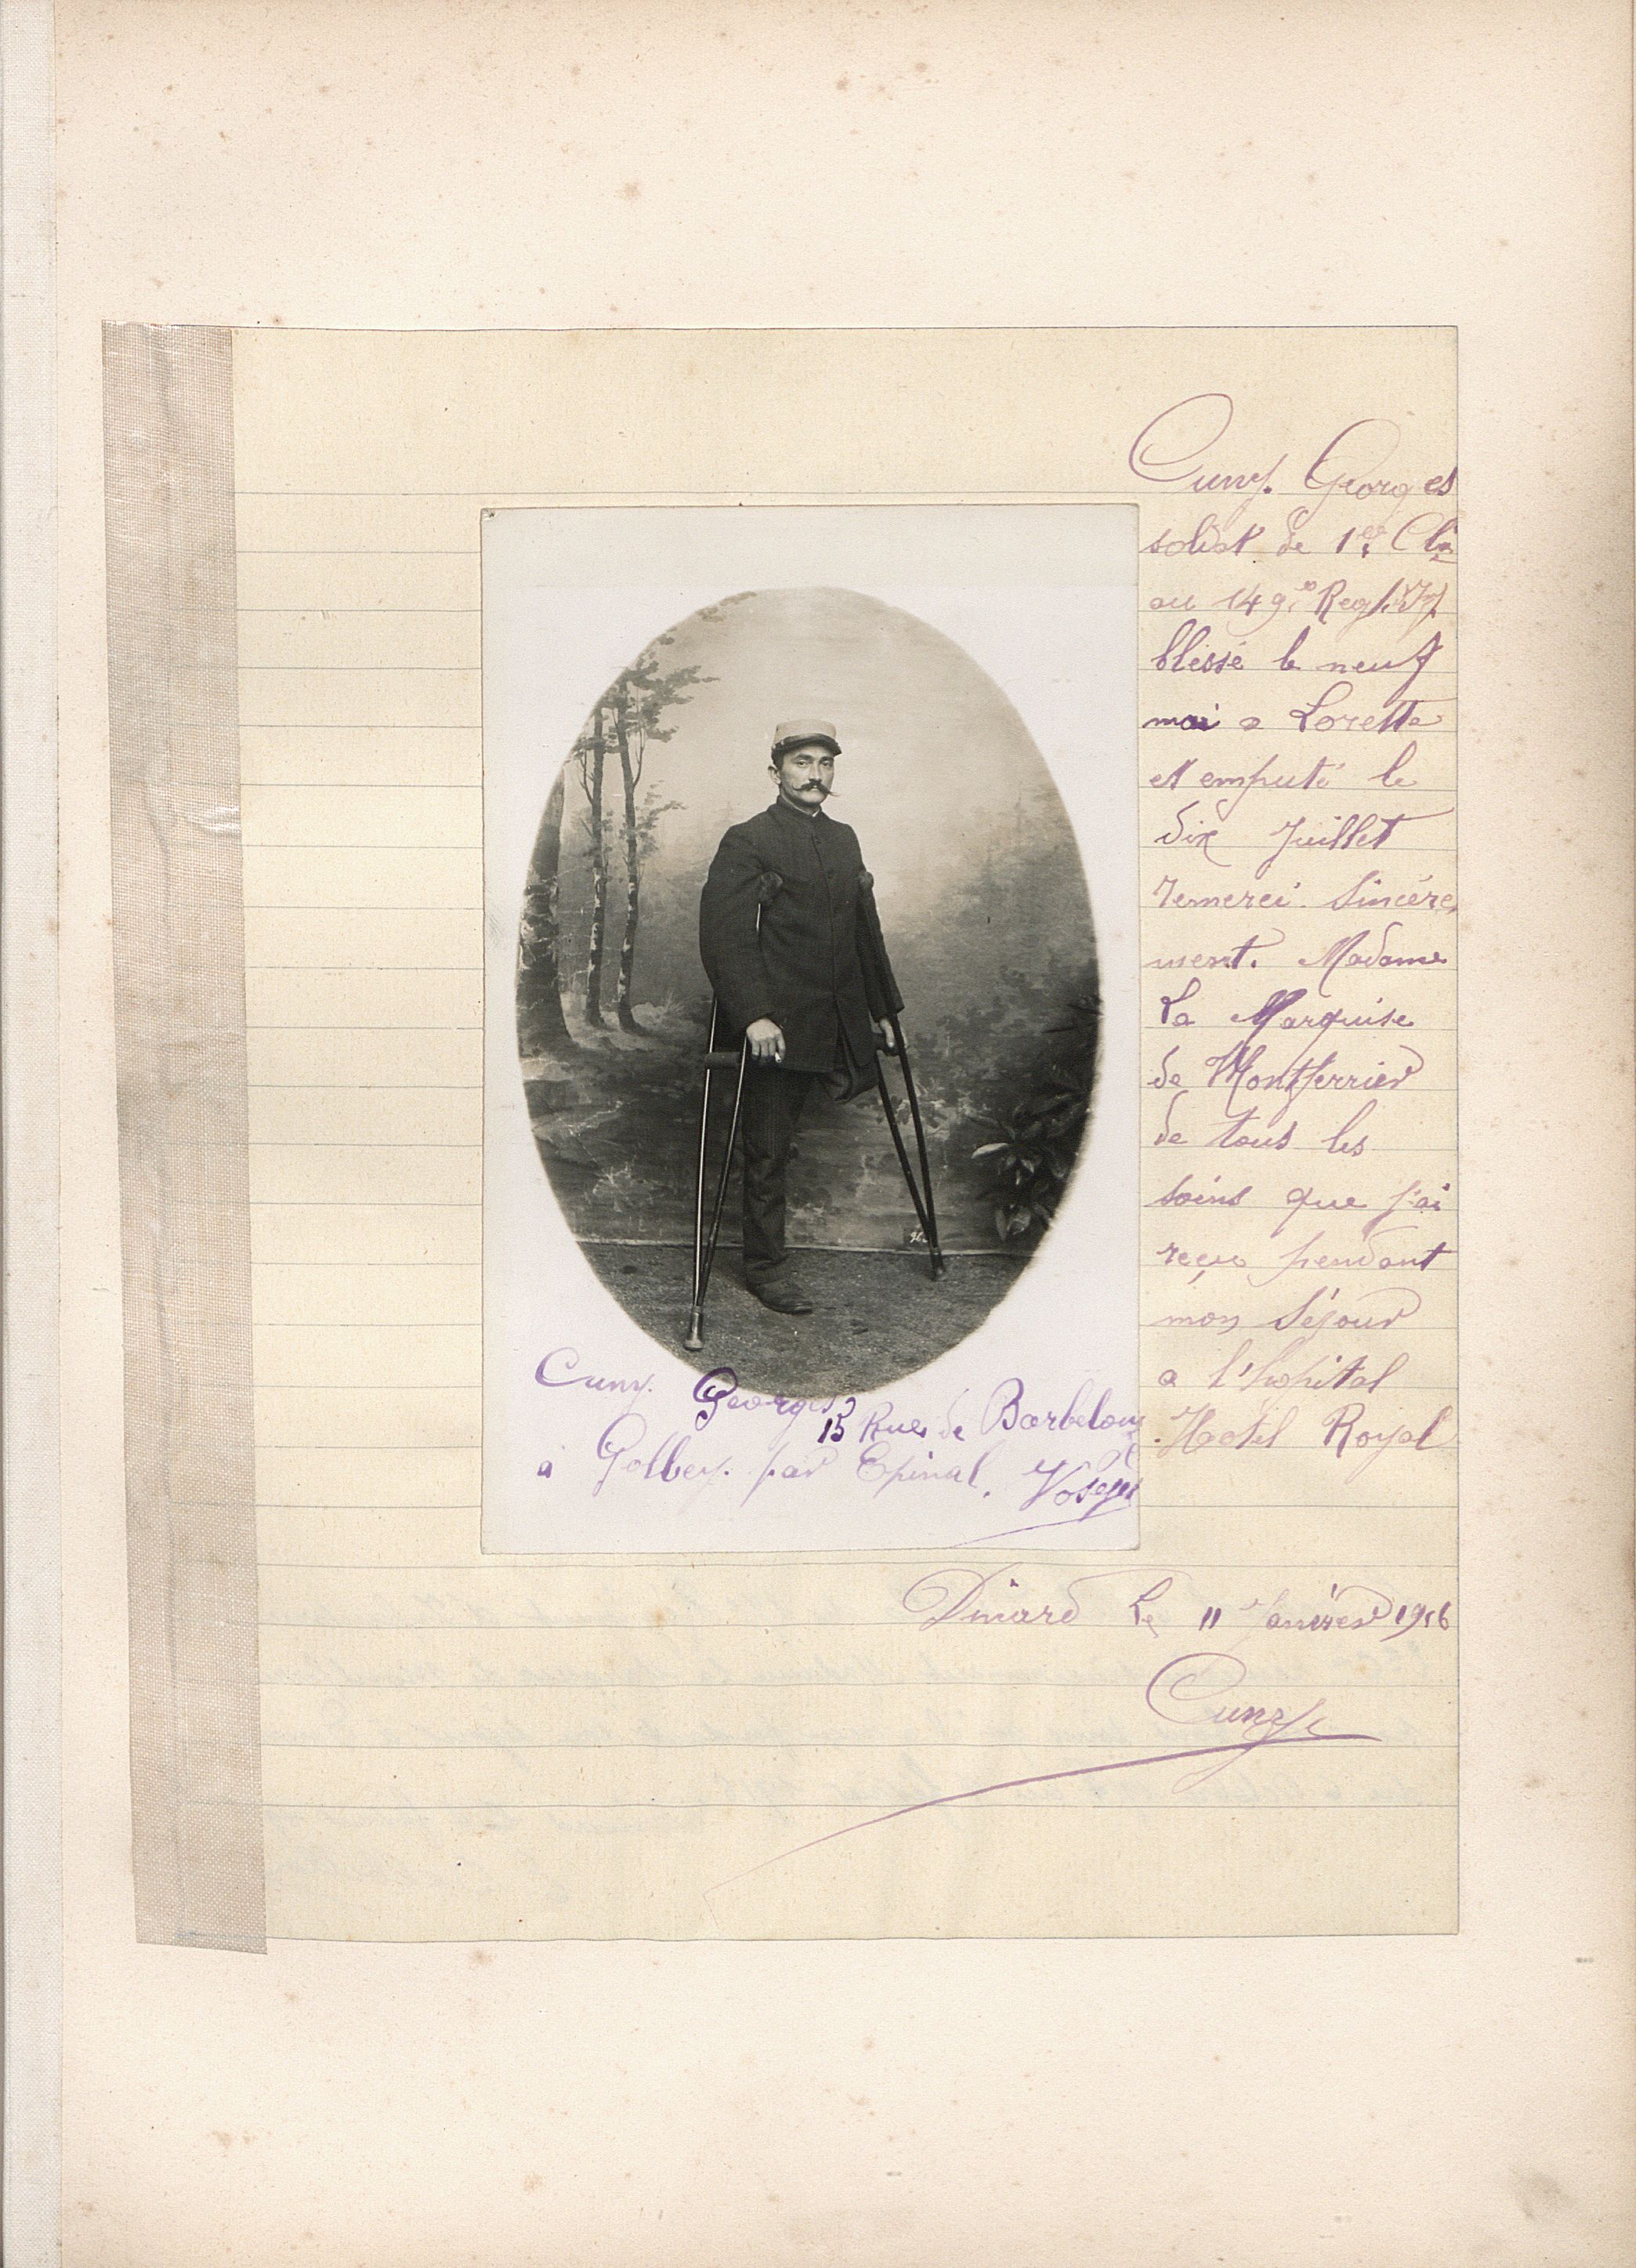 Cuny. Georges
soldat de 1ère Cla
au 149e Reg. Inf
blessé le neuf
mai a Lorette
et emputé le
dix Juillet
remerci. Sincère
ment. Madame
La Marquise
de Montferrier
de tous les
soins que j'ai
reçu pendant
mon Séjour
a l'hopital
Hotel Royal
Cuny. Georges
15 Rue de Barbelouze
à Golbey. par Epinal. Vosges
Dinard Le 11 Janvier 1916
Cuny